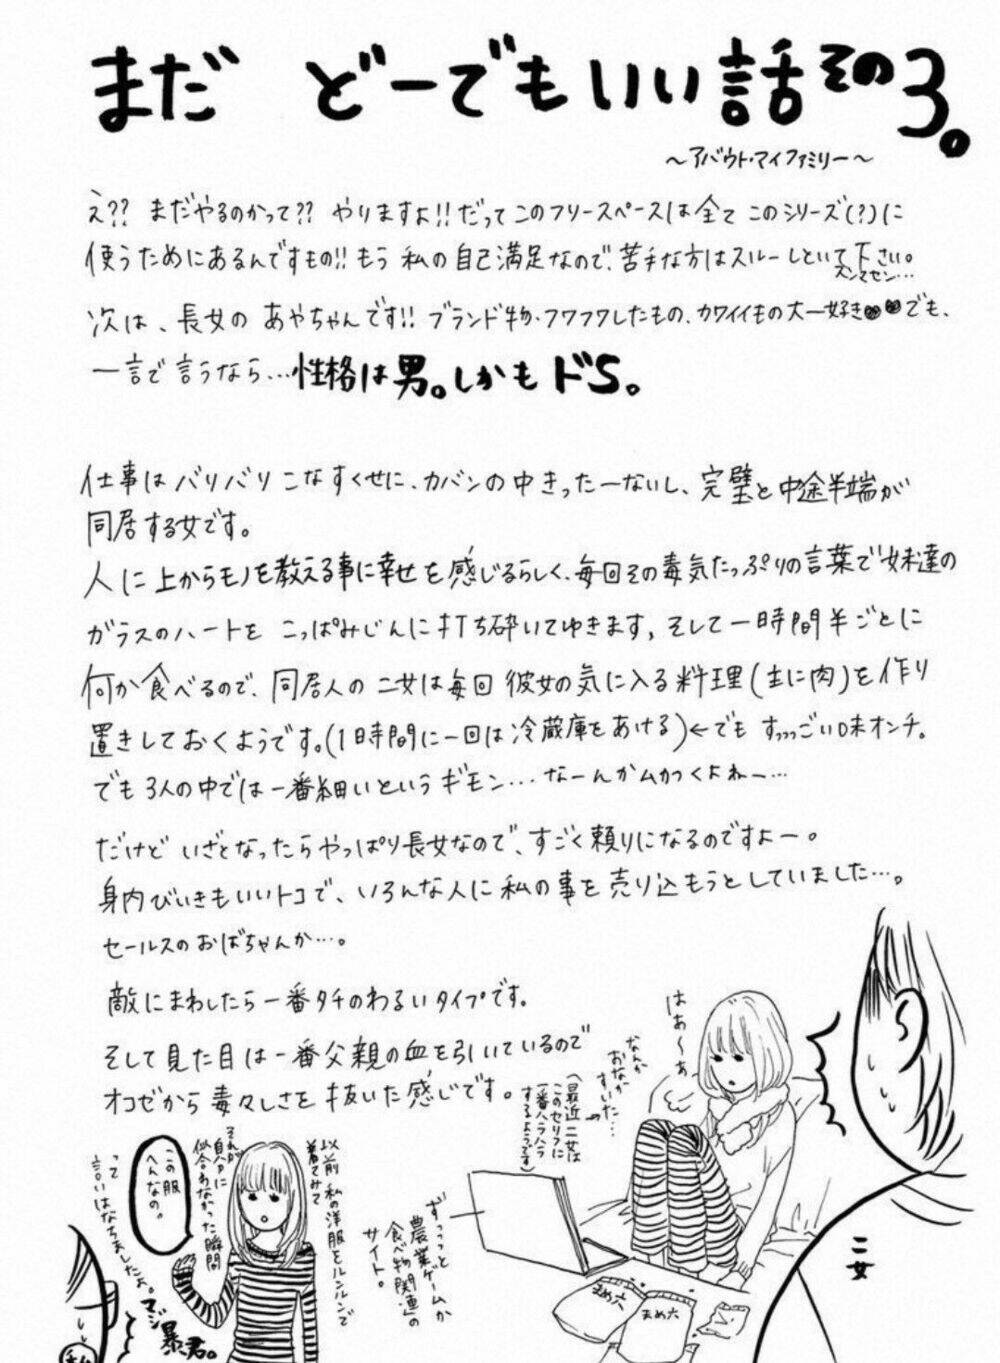 まだ どーでもいい話その3。
〜アバウト・マイファミリー〜
え?? まだやるのかって?? やりますよ!! だってこのフリースペースは全てこのシリーズ(?)に
使うためにあるんですもの!! もう私の自己満足なので、苦手な方はスルーしといて下さい。
スンマセン…
次は、長女の あやちゃんです!! ブランド物・フワフワしたもの、カワイイもの大一好き でも、
一言で言うなら…性格は男。しかもドS。
仕事はバリバリこなすくせに、カバンの中きったーないし、完璧と中途半端が
同居する女です。
人に上からモノを教える事に幸せを感じるらしく、毎回その毒気たっぷりの言葉で妹達の
ガラスのハートを こっぱみじんに打ち砕いてゆきます。そして一時間半ごとに
何か食べるので、同居人の二女は毎回彼女の気に入る料理(主に肉)を作り
置きしておくようです。(1時間に一回は冷蔵庫をあける)←でも すっっっごい味オンチ。
でも3人の中では一番細いというギモン… なーんかムカつくよねー…
だけど いざとなったらやっぱり長女なので、すごく頼りになるのですよー。
身内びいきもいいトコで、いろんな人に私の事を売り込もうとしていました…。
セールスのおばちゃんか…。
敵にまわしたら一番タチのわるいタイプです。
そして見た目は一番父親の血を引いているので
オコゼから毒々しさを抜いた感じです。
はぁ〜ぁ
なんか
おなか
すいた…
(最近二女は
このセリフに
一番ハラハラ
するようです)
ずっっっと
農業ゲームか
食べ物関連の
サイト。
まめ六
まめ六
二女
以前 私の洋服をルンルンで
着てみて
それが
自分に
似合わなかった瞬間
この服
へんなの。
って
言いはなちましたよ。マジ
暴君。
私